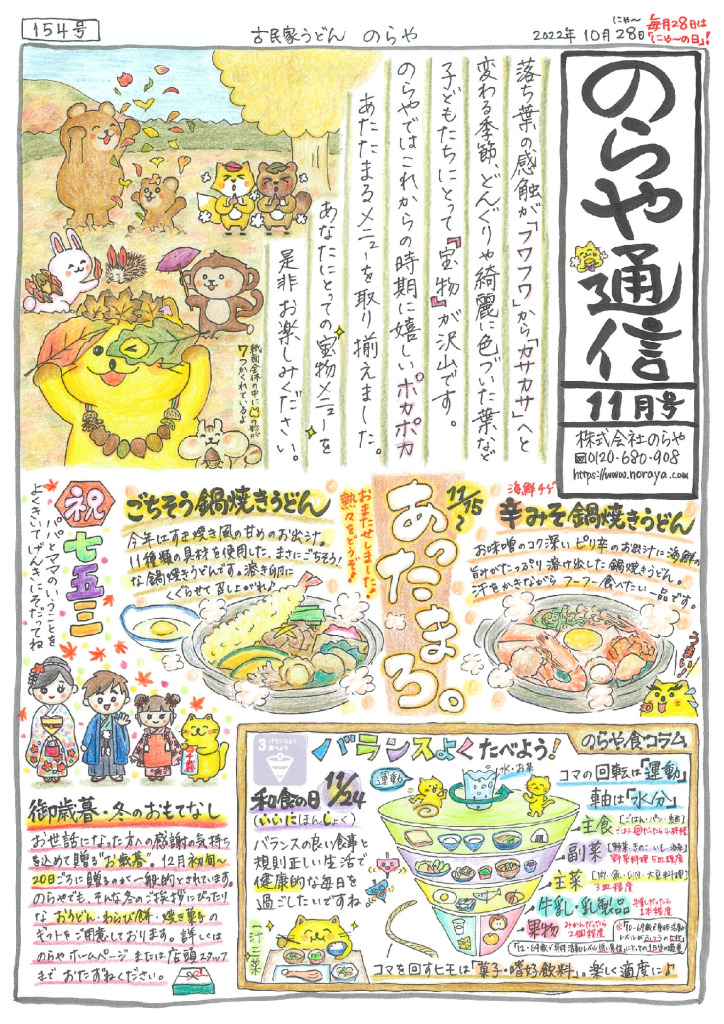 154号
古民家うどん のらや
にゃ〜
2022年10月28日
毎月28日は
「にゃ〜の日」!
のらや通信
11月号
株式会社のらや
0120-680-908
https://www.noraya.com
落ち葉の感触が「フワフワ」から「カサカサ」へと
変わる季節、どんぐりや綺麗に色づいた葉など
子どもたちにとって『宝物』が沢山です。
のらやではこれからの時期に嬉しいポカポカ
あたたまるメニューを取り揃えました。
あなたにとっての宝物メニューを
是非お楽しみください。
紙面全体の中に の形が
7つかくれているよ
海鮮チゲ
辛みそ鍋焼きうどん
お味噌のコク深いピリ辛のお出汁に海鮮の
旨みがたっぷり溶け出した鍋焼うどん。
汗をかきながらフーフー食べたい一品です。
うまい!
11/15〜
あったまろ。
おまたせしました♪
熱々をどうぞ♪
ごちそう鍋焼きうどん
今年はすき焼き風の甘めのお出汁。
11種類の具材を使用した、まさにごちそう!
な鍋焼きうどんです。溶き卵に
くぐらせて召し上がれ♪
祝
七五三
パパとママのいうことを
よくきいてげんきにそだってね
御歳暮・冬のおもてなし
お世話になった方への感謝の気持ち
を込めて贈る"お歳暮"。12月初旬〜
20日ごろに贈るのが一般的とされています。
のらやでも、そんな冬のご挨拶にぴったり
な おうどん・わらび餅・焼き菓子の
ギフトをご用意しております。詳しくは
のらやホームページ または店頭スタッフ
まで おたずねください。
のらや食コラム
3 バランスよく
食べよう
バランスよくたべよう!
和食の日 11/24
(いいにほんしょく)
バランスの良い食事と
規則正しい生活で
健康的な毎日を
過ごしたいですね
一汁三菜
運動
水・お茶
コマの回転は「運動」
軸は「水分」
主食
[ごはん・パン・麺]
副菜
[野菜・きのこ・いも・海藻]
野菜料理5皿程度
主菜
[肉・魚・卵・大豆料理]
3皿程度
牛乳・乳製品
牛乳だったら
1本程度
果物
みかんだったら
2個程度
コマを回すヒモは「菓子・嗜好飲料」。楽しく適度に♪